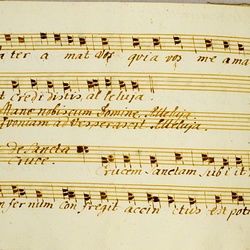 ter a mat vos qui a vos me ama
t credi distis. al leluja.
Mane nobiscum Domine. Alleluja.
Quoniam advesperascit. Alleluja.
de Sancta
Cruce. Crucem Sanctam sub i it
fer num con fregit accin ctus est pot